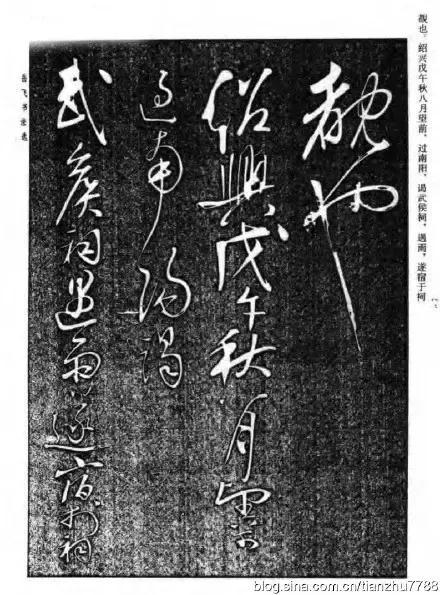 覩也。绍兴戊午秋八月望前,过南阳,谒武侯祠,遇雨,遂宿于祠
覩也
紹興戊午秋八月望前
過南陽謁
武侯祠遇雨遂宿於祠
岳飞书法选
blog.sina.com.cn/tianzhu7788